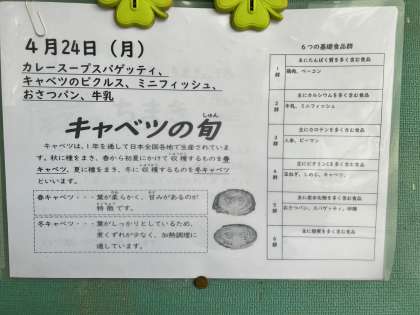 4月24日（月）
カレースープスパゲッティ、
キャベツのピクルス、ミニフィッシュ、
おさつパン、牛乳
キャベツの旬
しゅん
キャベツは、1年を通して日本全国各地で生産されていま
す。秋に種をまき、春から初夏にかけて収穫するものを春
キャベツ、夏に種をまき、冬に収穫するものを冬キャベツ
といいます。
春キャベツ・・・葉が柔らかく、甘みがあるのが
特徴です。
冬キャベツ・・・葉がしっかりとしているため、
煮くずれが少なく、加熱調理に
適しています。
6つの基礎食品群
1群
主にたんぱく質を多く含む食品
鶏肉、ベーコン
2群
主にカルシウムを多く含む食品
牛乳、ミニフィッシュ
3群
主にカロテンを多く含む食品
人参、ピーマン
4群
主にビタミンCを多く含む食品
玉ねぎ、しめじ、キャベツ、
5群
主に炭水化物を多く含む食品
おさつパン、スパゲッティ、砂糖
6群
主に脂質を多く含む食品